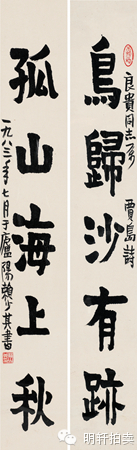 鳥歸沙有跡
良貴同志属 賈島詩
孤山海上秋
一九八三年七月于廬陽賴少其書
明轩拍卖